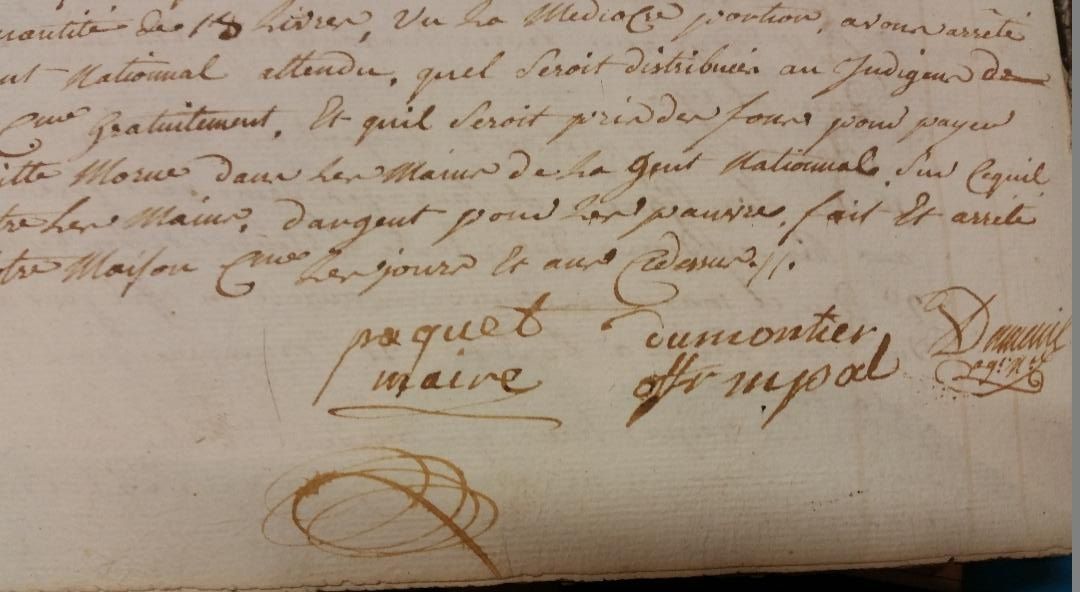 uantité de 18 Livres, Vu La Mediocre portion, avons arrêté
nt Nationnal attendu, quel Seroit distribuée au Indigens de
Cme Gratuitement, Et quil Seroit pris des fons pour payer
itte Morue dans Les Mains de La gent Nationnal, Sur Cequil
tre Les Mains, dargent pour Les pauvres, fait Et arrêté
tre Maison Cme Les jours Et ans Cydessus //.
paquet dumontier
maire offr mpal